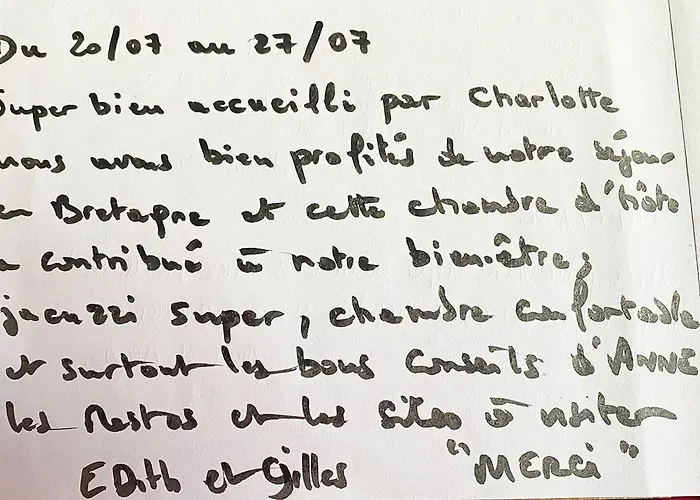 Du 20/07 au 27/07
Super bien accueilli par Charlotte
nous avons bien profités de notre séjour
en Bretagne et cette chambre d'hôte
a contribué à notre bienêtre;
jacuzzi super, chambre confortable
et surtout les bons conseils d'ANNE
les Restos et les sites à visiter
EDith et Gilles "MERCi"